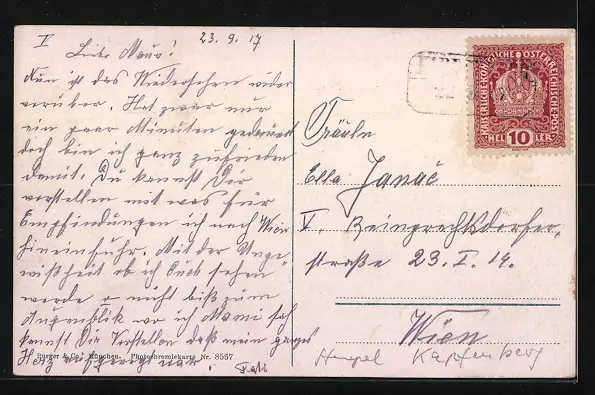 I
23.9.17
Liebe Maus!
Nun ist das Wiedersehen wieder
vorüber. Hat zwar nur
ein paar Minuten gedauert
doch bin ich ganz zufrieden
damit. Du kannst Dir
vorstellen mit was für
Empfindungen ich nach Wien
hineinfuhr. Mit der Unge-
wißheit ob ich Euch sehen
werde o. nicht biß zum
Augenblik wo ich Mami sah
kannst Dir vorstellen daß mein ganzes
Herz
Burger & Co., München. Photochromiekarte Nr. 8567
KAISERLICHE KÖNIGLICHE ÖSTERREICHISCHE POST
10
HELLER
Fräuln
Ella Janač
V. Reinprechtsdorfer-
straße 23. I. 14.
Wien
Kapfenberg